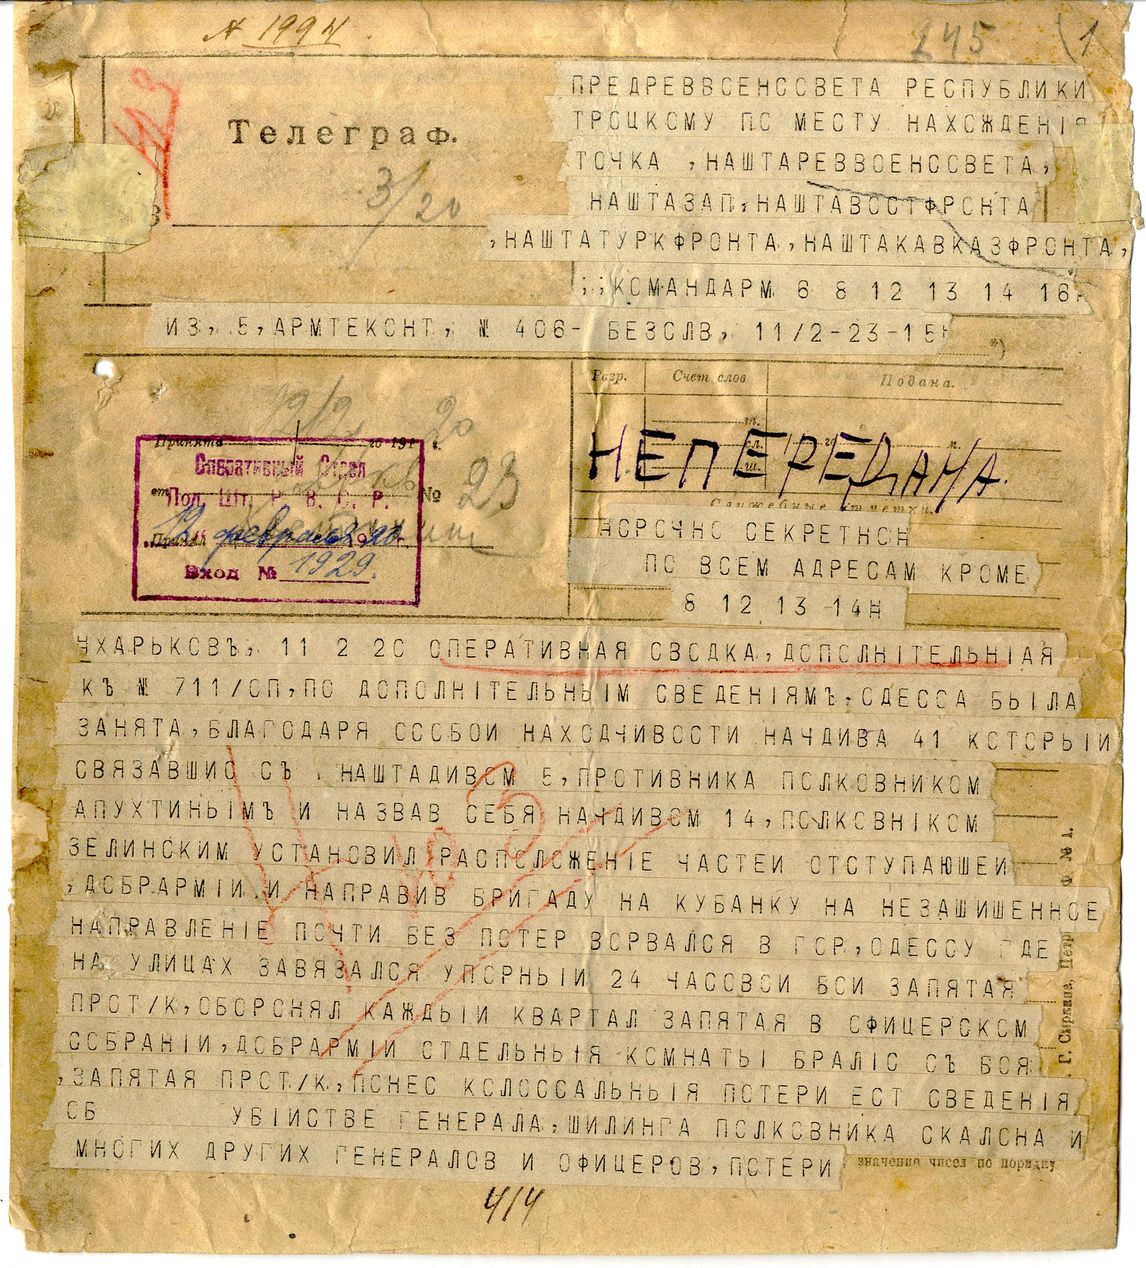 № 1994
245
(1
№3
Телеграф.
3/20
ПРЕДРЕВВСЕНССВЕТА РЕСПУБЛИКИ
ТРОЦКОМУ ПС МЕСТУ НАХСЖДЕНІЯ
ТОЧКА ,НАШТАРЕВВОЕНССВЕТА,
НАШТАЗАП,НАШТАВОСТФРСНТА
,НАШТАТУРКФРОНТА,НАШТАКАВКАЗФРОНТА,
;;КОМАНДАРМ 6 8 12 13 14 16
ИЗ, 5,АРМТЕКСНТ, № 406- БЕЗСЛВ, 11/2-23-15
*)
Разр. Счет слов Подана.
12/2 20
Принята го 191 г.
НЕПЕРЕДАНА.
Оперативный Отдел
Пол. Шт. Р. В. С. Р.
№ 23
12 февраля 1920 г.
Вход № 1929.
Служебные отметки.
НСРСЧНС СЕКРЕТНСН
ПО ВСЕМ АДРЕСАМ КРОМЕ
8 12 13 14Н
ЧХАРЬКОВЪ, 11 2 2С СПЕРАТИВНАЯ СВСДКА,ДСПСЛНІТЕЛЬНІАЯ
КЪ № 711/СП,ПС ДСПОЛНІТЕЛЬНЫМ СВЕДЕНІЯМЪ,СДЕССА БЫЛА
ЗАНЯТА,БЛАГОДАРЯ СССБОИ НАХСДЧИВОСТИ НАЧДИВА 41 КСТОРЫИ
СВЯЗАВШИС СЪ НАШТАДИВОМ 5,ПРОТИВНИКА ПСЛКОВНИКОМ
АПУХТИНЫМЪ И НАЗВАВ СЕБЯ НАЧДИВСМ 14,ПСЛКОВНІКОМ
ЗЕЛИНСКИМ УСТАНОВИЛ РАСПСЛСЖЕНІЕ ЧАСТЕИ ОТСТУПАЮШЕИ
,ДСБРАРМІИ И НАПРАВИВ БРИГАДУ НА КУБАНКУ НА НЕЗАШИШЕННОЕ
НАПРАВЛЕНІЕ ПСЧТИ БЕЗ ПСТЕР ВСРВАЛСЯ В ГСР,СДЕССУ ГДЕ
НА УЛИЦАХ ЗАВЯЗАЛСЯ УПСРНЫИ 24 ЧАССВСИ БСИ ЗАПЯТАЯ
ПРСТ/К,СБОРСНЯЛ КАЖДЫИ КВАРТАЛ ЗАПЯТАЯ В СФИЦЕРСКОМ
ССБРАНІИ,ДСБРАРМІИ СТДЕЛЬНЫЯ КСМНАТЫ БРАЛІС СЪ БСЯ
,ЗАПЯТАЯ ПРСТ/К,ПСНЕС КСЛОССАЛЬНЫЯ ПСТЕРИ ЕСТ СВЕДЕНІЯ
СБ УБІЙСТВЕ ГЕНЕРАЛА,ШИЛИНГА ПСЛКОВНИКА СКАЛСНА И
МНОГИХ ДРУГИХ ГЕНЕРАЛОВ И ОФИЦЕРОВ,ПСТЕРИ
значение чисел по порядку
4/4